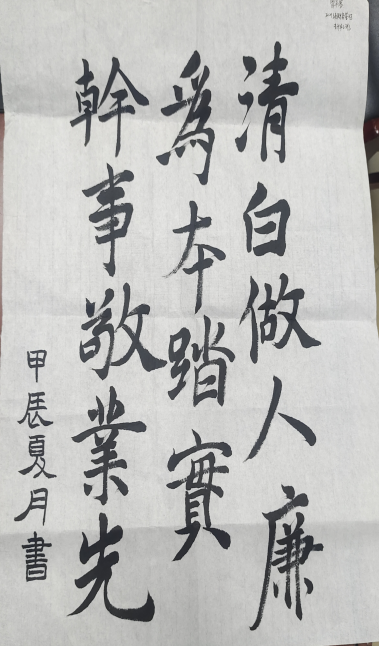 清白做人廉
為本踏實
幹事敬業先
甲辰夏月書